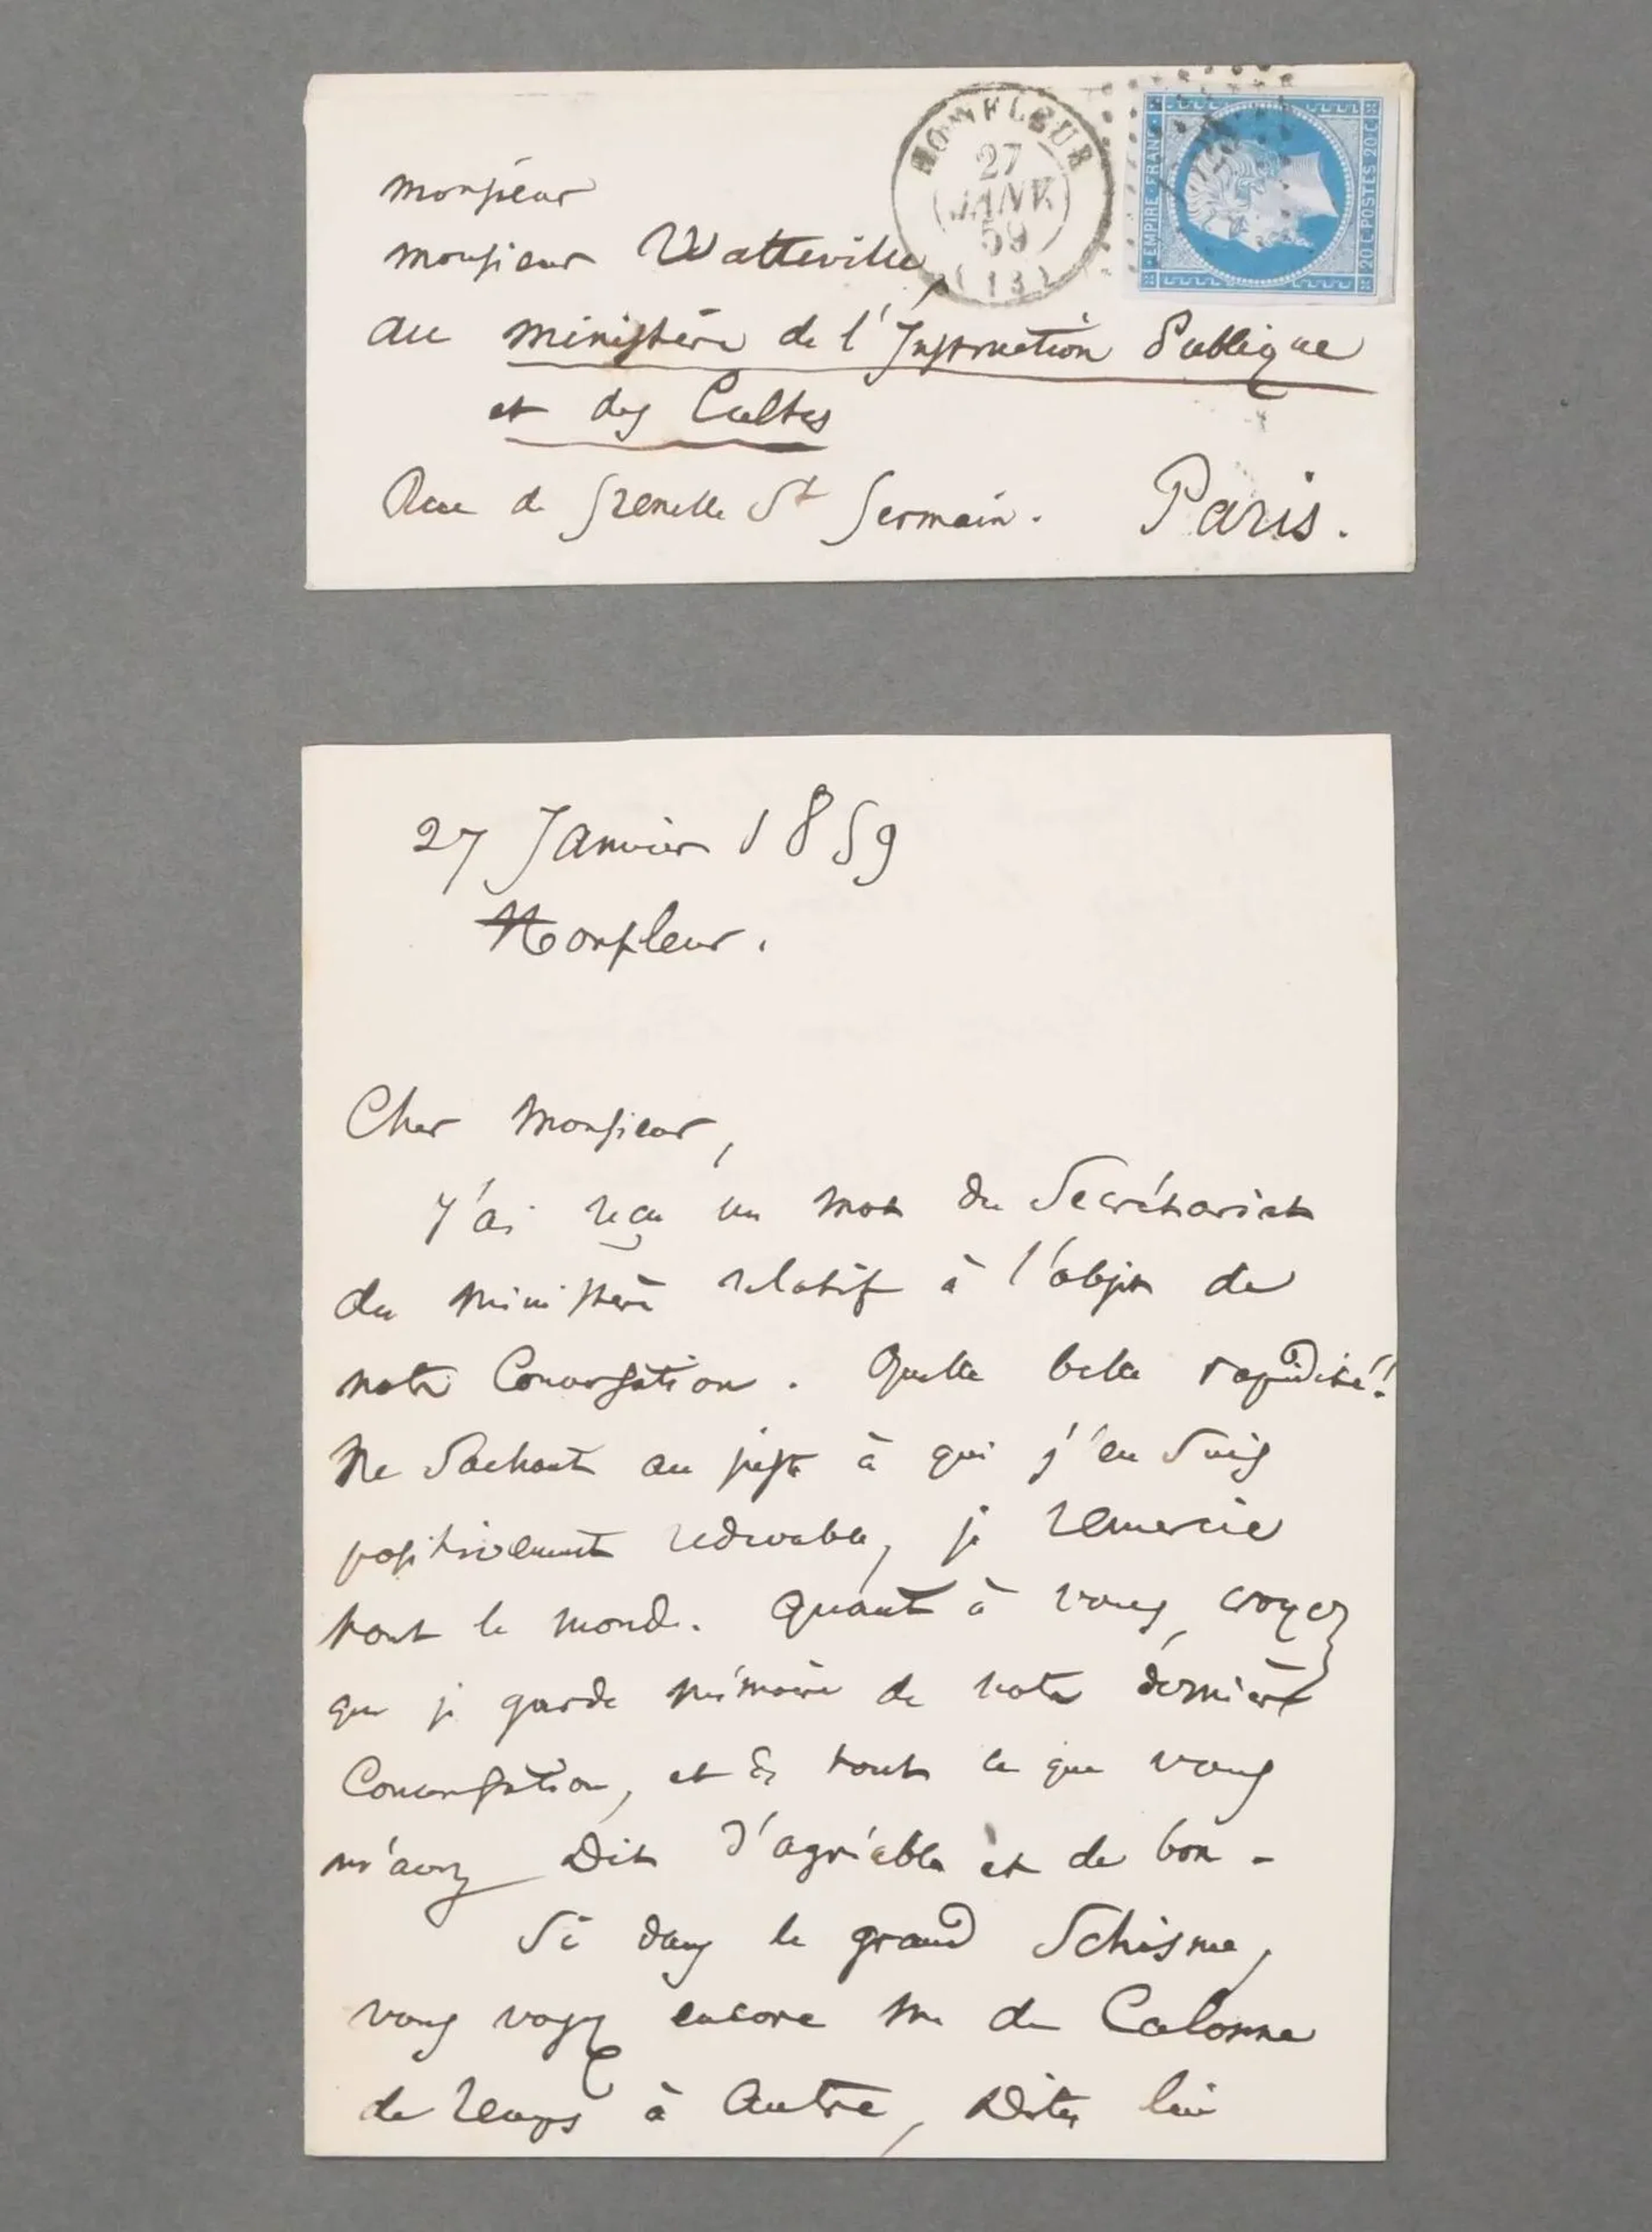 monsieur
monsieur Watteville,
au ministère de l'Instruction Publique
et des Cultes
Rue de Grenelle St Germain. Paris.
HONFLEUR
27
JANV.
59
(13)
EMPIRE FRANC
20 C POSTES 20 C
27 Janvier 1859
Honfleur.
Cher Monsieur,
J'ai reçu un mot du Secrétariat
du ministère relatif à l'objet de
notre Conversation. Quelle belle rapidité!
Ne Sachant au juste à qui j'en Suis
positivement redevable, je remercie
tout le monde. Quant à vous, croyez
que je garde mémoire de notre dernière
Conversation, et de tout ce que vous
m'avez Dit d'agréable et de bon.
Si dans le grand Schisme,
vous voyez encore M. de Calonne
de temps à Autre, Dites lui